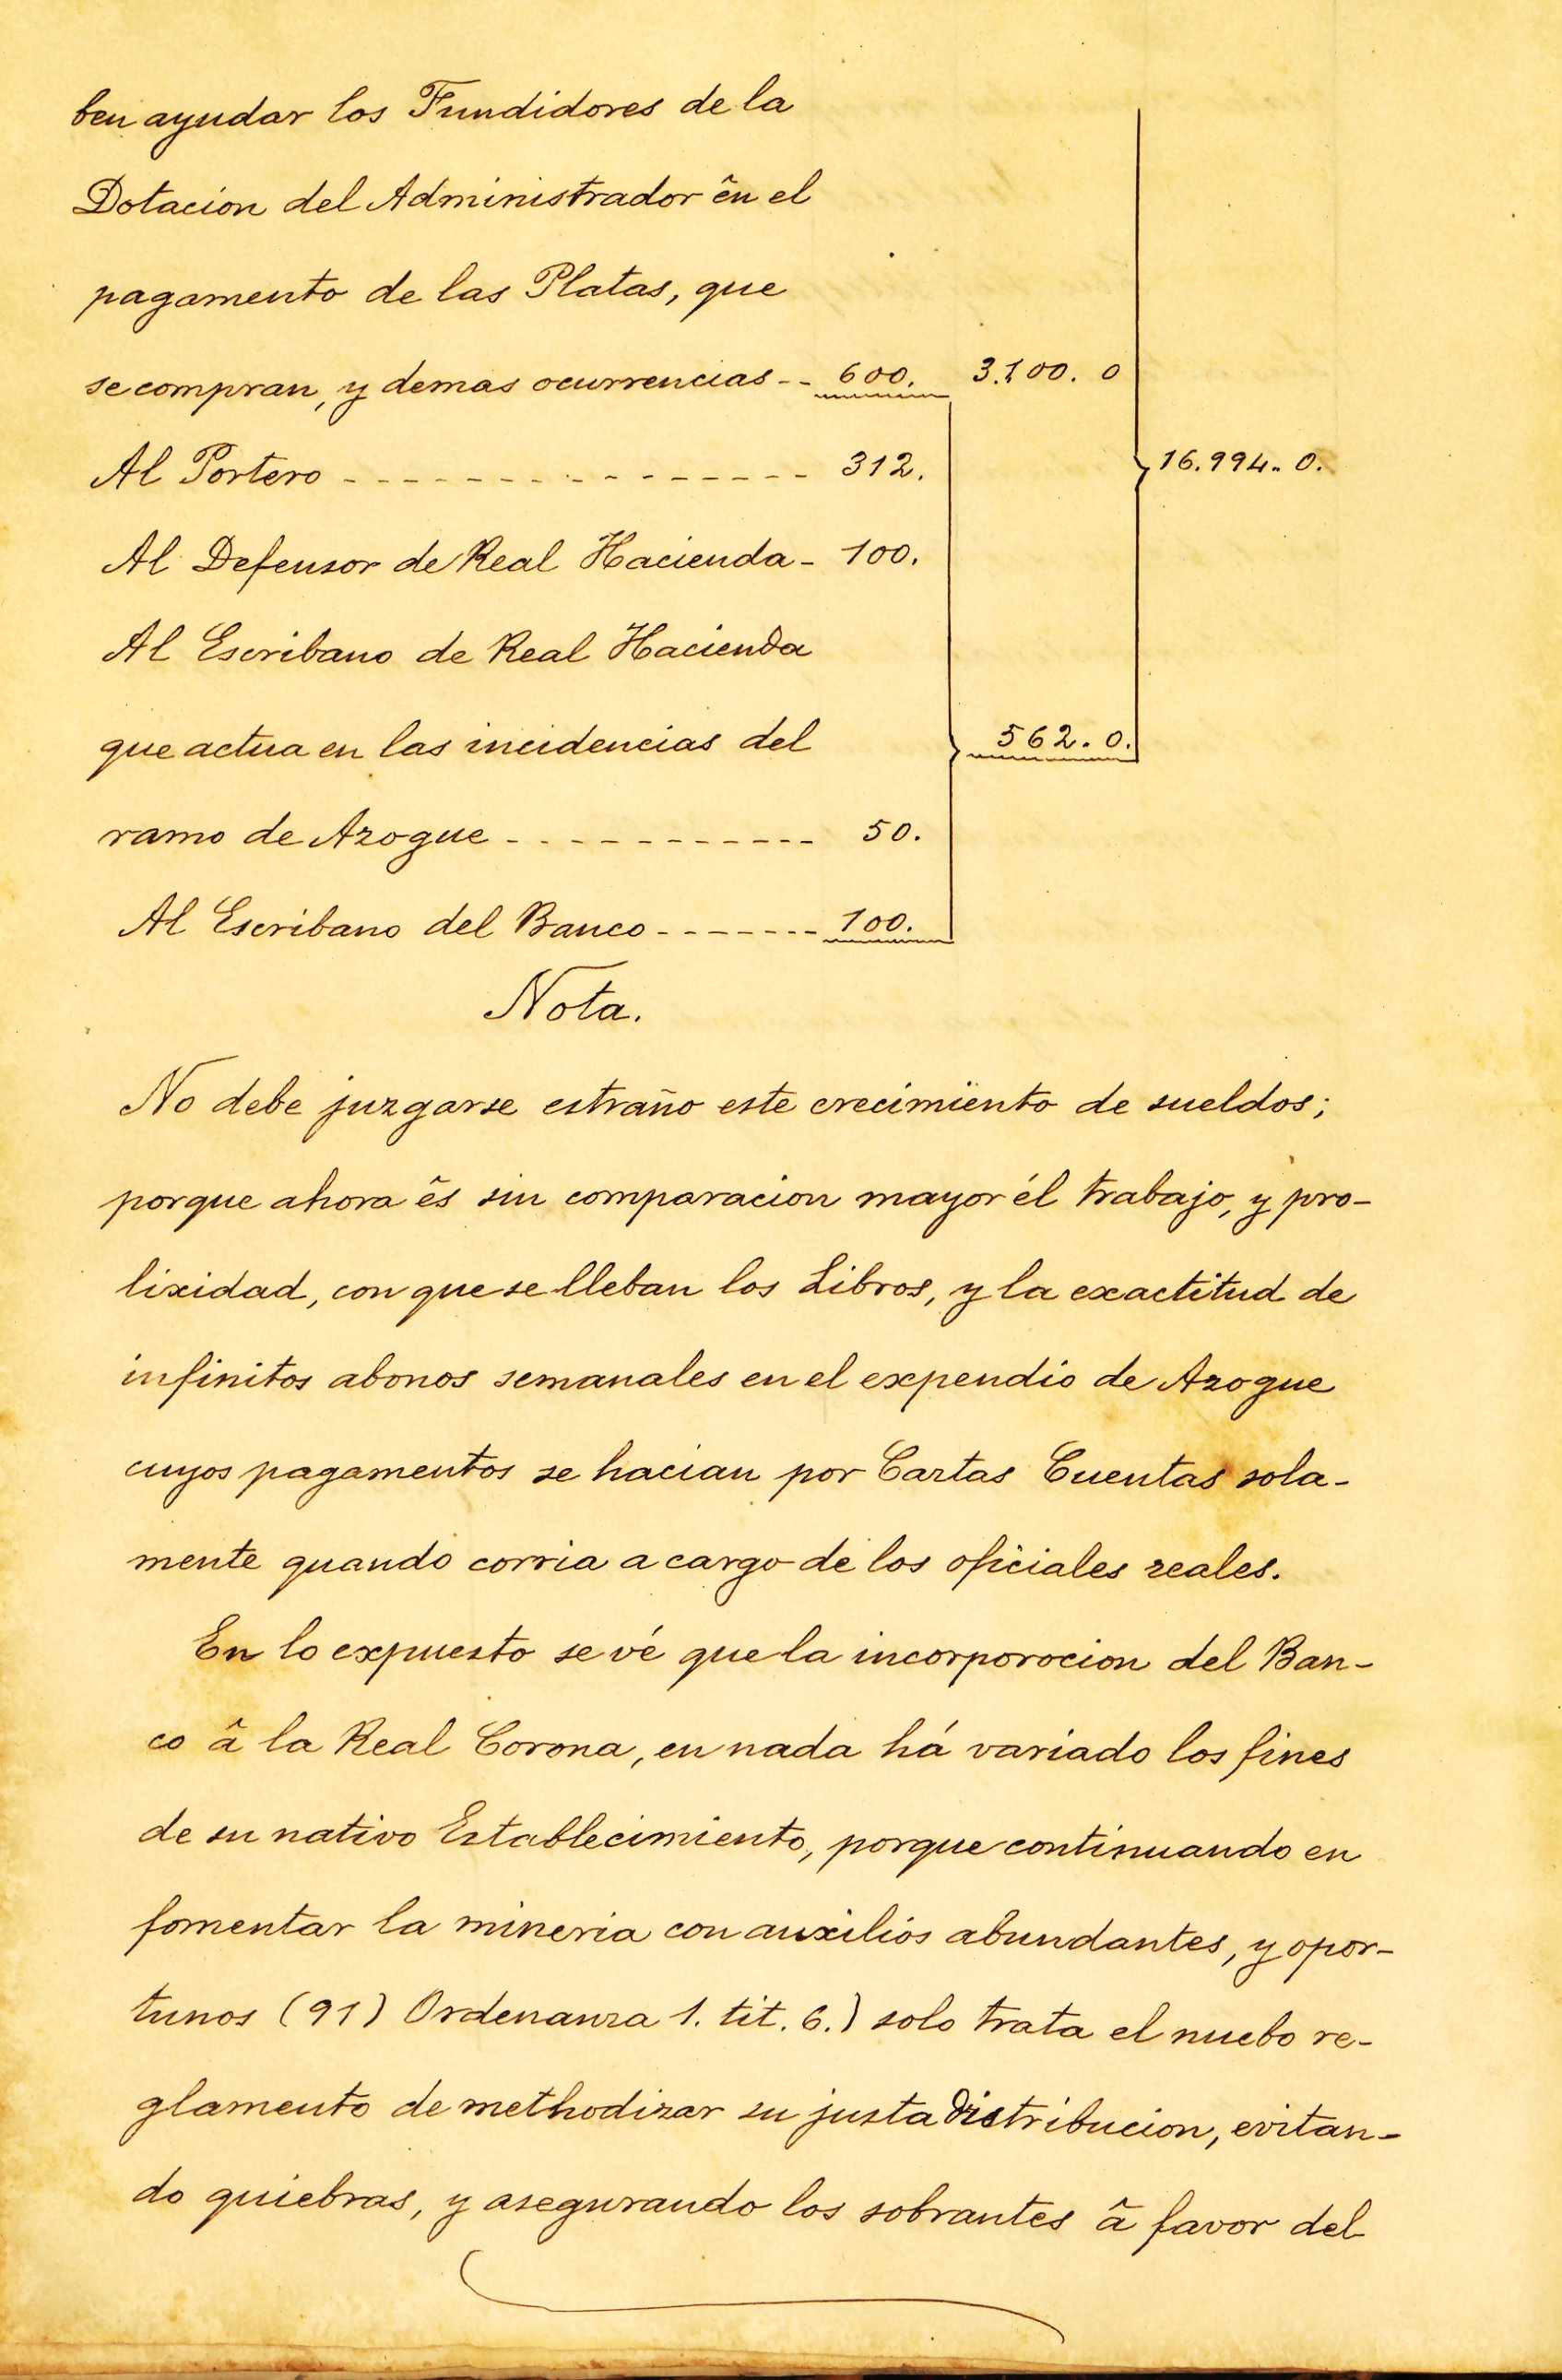 ben ayudar los Fundidores de la
Dotacion del Administrador ên el
pagamento de las Platas, que
se compran, y demas ocurrencias - - 600. 3.100. 0
Al Portero - - - - - - - - - - - - - - - - 312. 16.994.. 0.
Al Defensor de Real Hacienda - 100.
Al Escribano de Real Hacienda
que actua en las incidencias del 562. 0.
ramo de Azogue - - - - - - - - - - - 50.
Al Escribano del Banco - - - - - - - 100.
Nota.
No debe juzgarse estraño este crecimiento de sueldos;
porque ahora ês sin comparacion mayor él trabajo, y pro-
lixidad, con que se lleban los Libros, y la exactitud de
infinitos abonos semanales en el expendio de Azogue
cuyos pagamentos se hacian por Cartas Cuentas sola-
mente quando corria a cargo de los oficiales reales.
En lo expuesto se vé que la incorporocion del Ban-
co â la Real Corona, en nada há variado los fines
de su nativo Establecimiento, porque continuando en
fomentar la mineria con auxilios abundantes, y opor-
tunos (91) Ordenanza 1. tit. 6.) solo trata el nuebo re-
glamento de methodizar su justa distribucion, evitan-
do quiebras, y asegurando los sobrantes â favor del